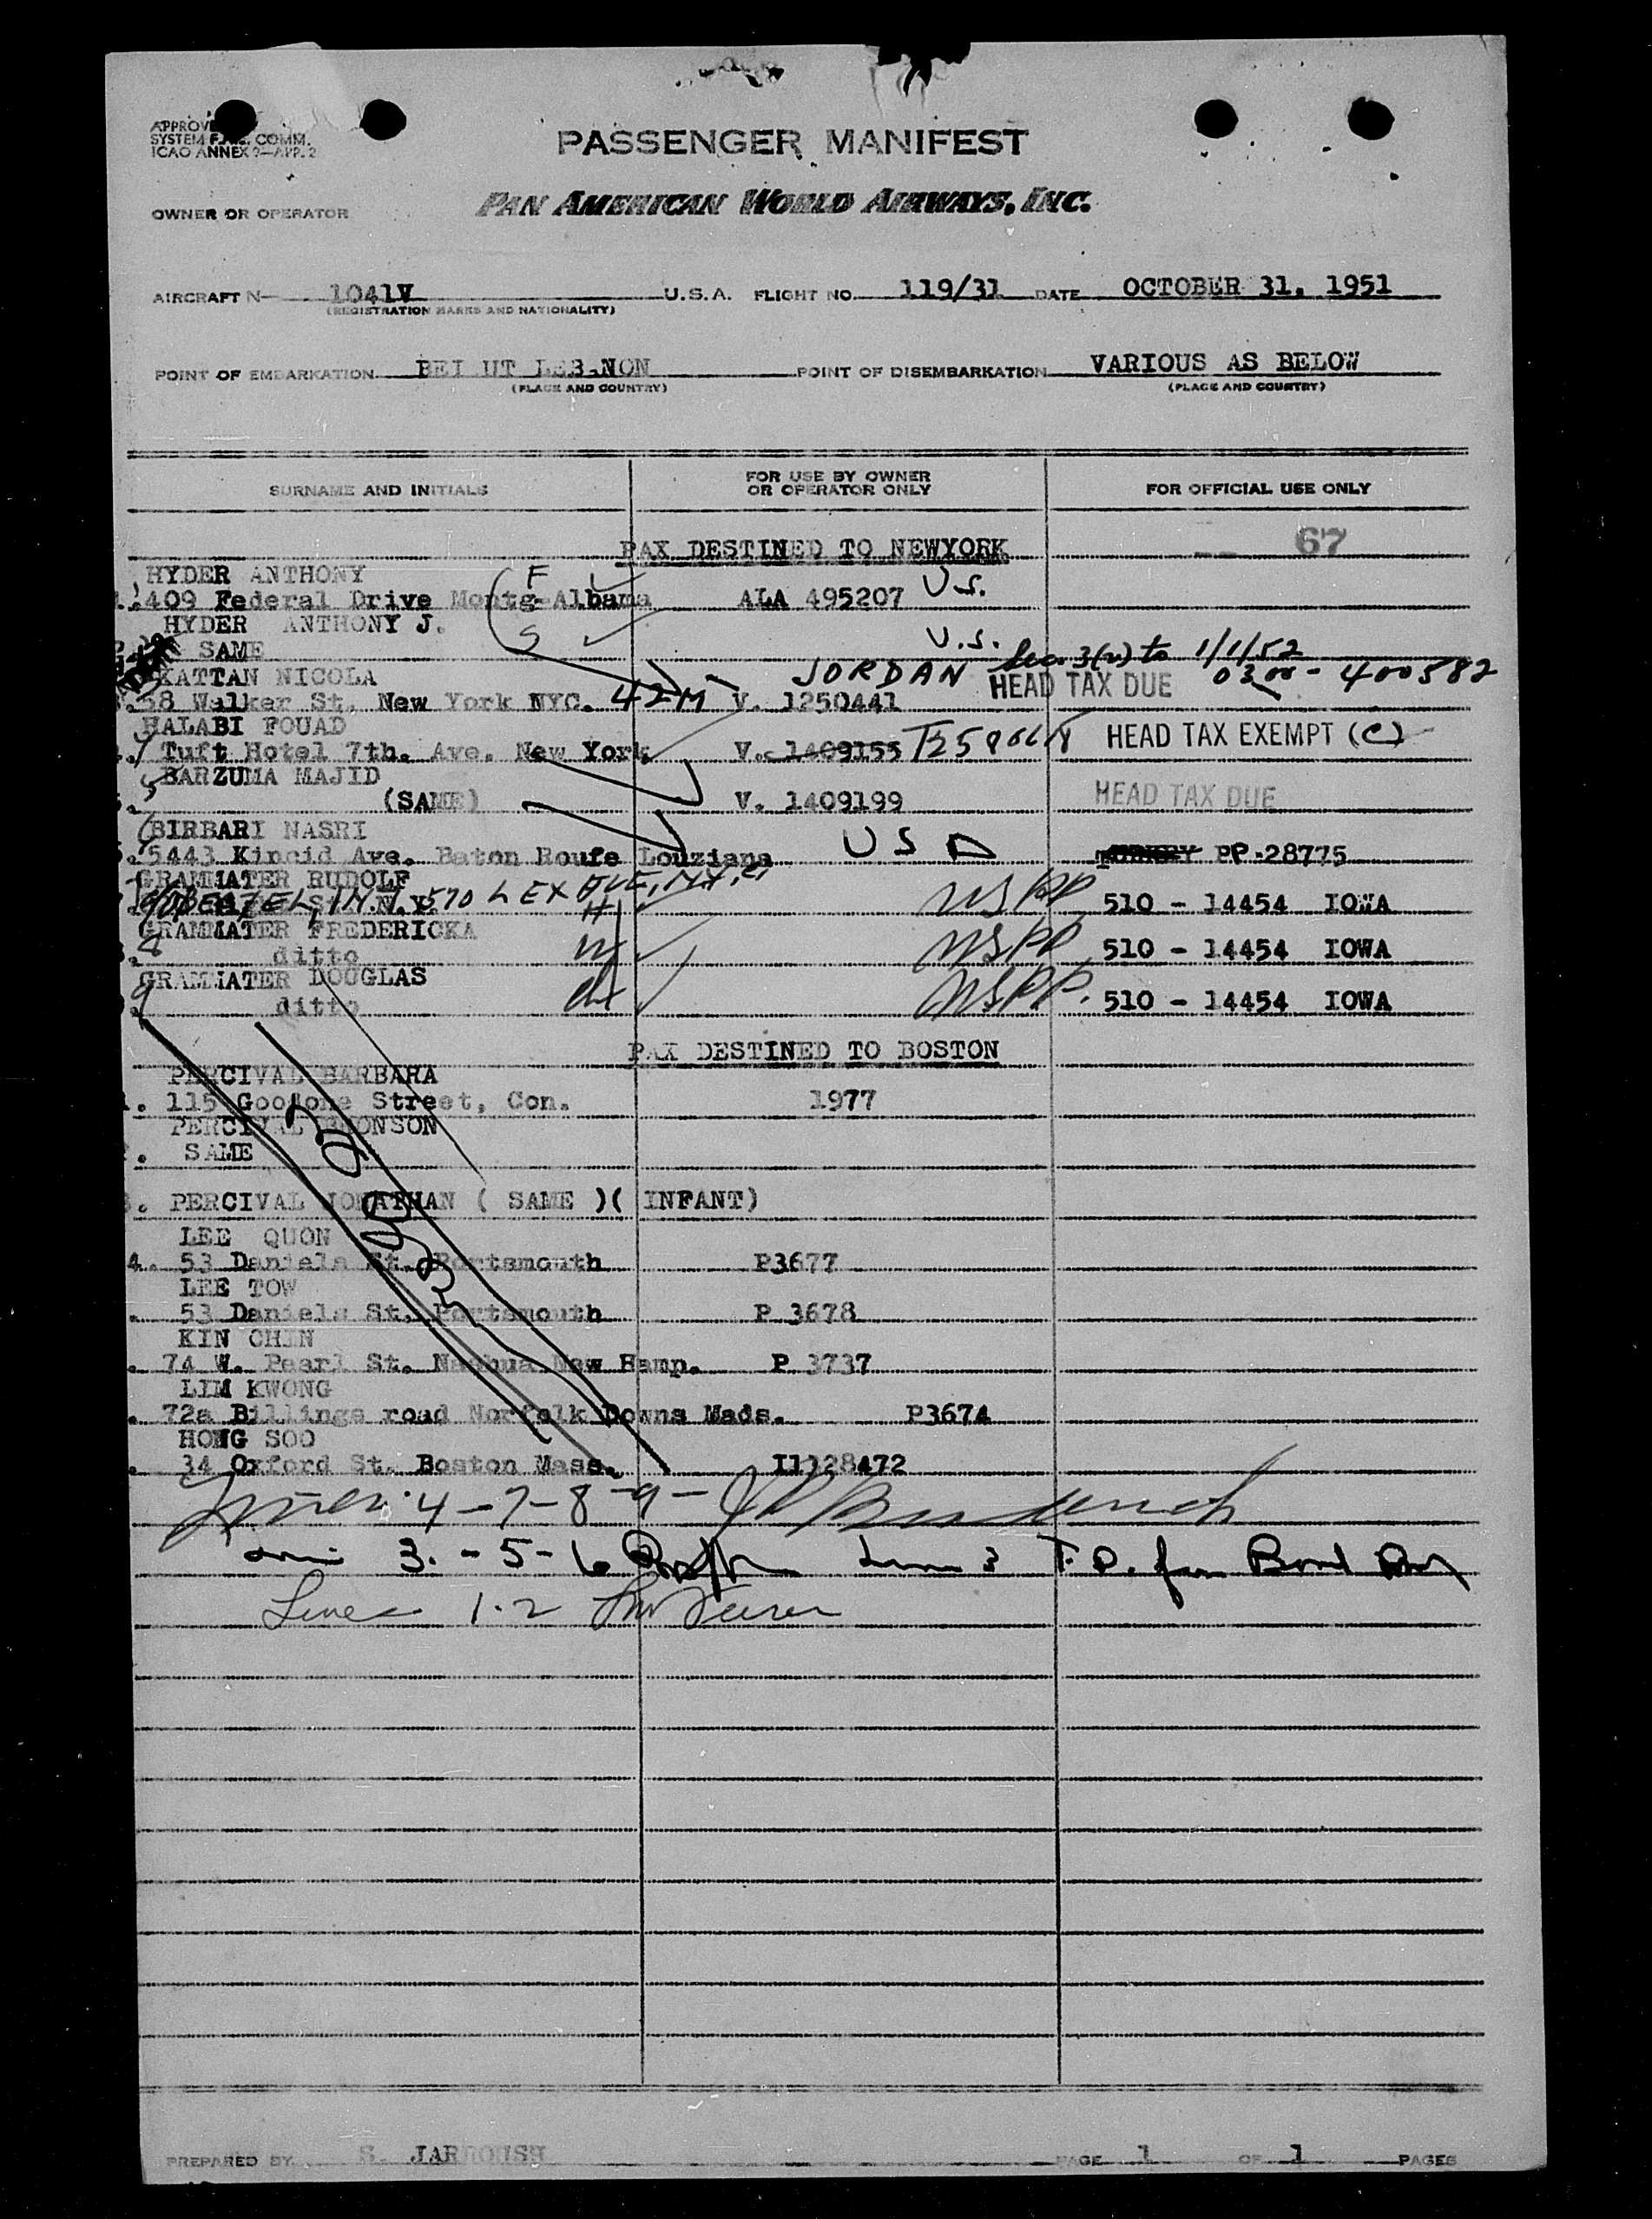 APPROVE
SYSTEM F COMM.
ICAO ANNEX 9-APP. 2
PASSENGER MANIFEST
OWNER OR OPERATOR PAN AMERICAN WORLD AIRWAYS, INC.
AIRCRAFT N- 1041V U.S.A. FLIGHT NO. 119/31 DATE OCTOBER 31, 1951
(REGISTRATION MARKS AND NATIONALITY)
POINT OF EMBARKATION BEI UT LEB-NON POINT OF DISEMBARKATION VARIOUS AS BELOW
(PLACE AND COUNTRY) (PLACE AND COUNTRY)
SURNAME AND INITIALS FOR USE BY OWNER OR OPERATOR ONLY FOR OFFICIAL USE ONLY
PAX DESTINED TO NEWYORK 67
HYDER ANTHONY F
409 Federal Drive Montg-Albama ALA 495207 U.S.
HYDER ANTHONY J. S
SAME U.S.
Sec 3(2) to 1/1/52
KATTAN NICOLA JORDAN HEAD TAX DUE 0300 - 400582
58 Walker St. New York NYC. 42M V. 1250441
HALABI FOUAD
Tuft Hotel 7th. Ave. New York V. 1409155 HEAD TAX EXEMPT (C)
BARZUMA MAJID
5. (SAME) V. 1409199 HEAD TAX DUE
BIRBARI NASRI USA
5443 Kincid Ave. Baton Roufe Louziana PP.28775
GRAMMATER RUDOLF
570 LEX AVE, N.Y.C. H USPP 510 - 14454 IOWA
GRAMMATER FREDERICKA
8. ditto W USPP 510 - 14454 IOWA
GRAMMATER DOUGLAS
9. ditto USPP. 510 - 14454 IOWA
PAX DESTINED TO BOSTON
PERCIVAL BARBARA
1. 115 Street, Con. 1977
PERCIVAL BRONSON
2. SAME
3. PERCIVAL JONATHAN ( SAME )( INFANT)
LEE QUON
4. 53 Daniels St. Portsmouth P3677
LEE TOW
. 53 Daniels St. Portsmouth P 3678
KIN CHIN
. 74 W. Pearl St. Nashua New Hamp. P 3737
LIM KWONG
. 72a Billings road Norfolk Downs Mads. P3674
HONG SOO
. 34 Oxford St. Boston Mass. I1128472
Lines 4-7-8-9-
3.-5-6 Line 3 T.D. for Bond
Lines 1-2
PREPARED BY S. JARROUSH PAGE 1 OF 1 PAGES